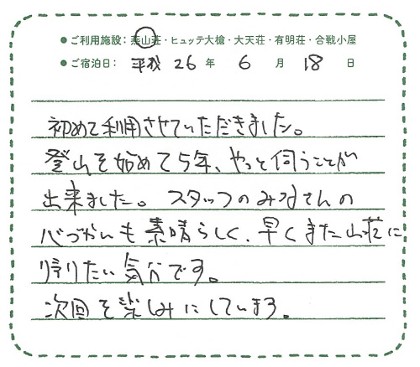 ●ご利用施設:燕山荘・ヒュッテ大槍・大天荘・有明荘・合戦小屋
●ご宿泊日: 平成 26 年 6 月 18 日
初めて利用させていただきました。
登山を始めて5年、やっと伺うことが
出来ました。スタッフのみなさんの
心づかいも素晴らしく、早くまた山荘に
帰りたい気分です。
次回を楽しみにしています。